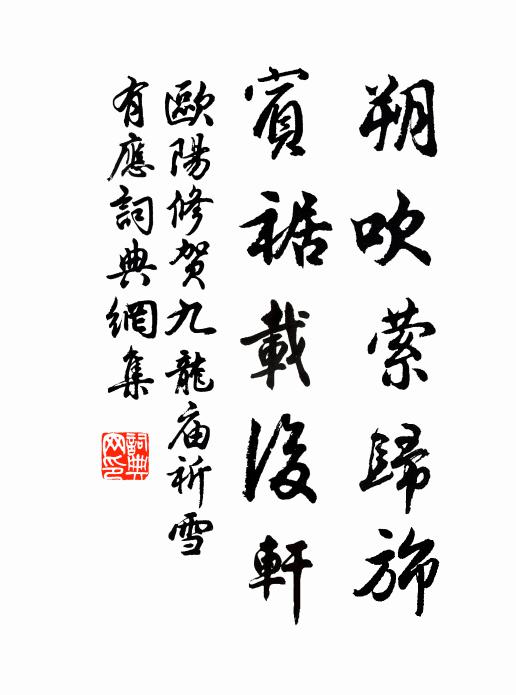 朔吹萦歸旆
賓裾載後軒
歐陽修賀九龍庙祈雪
有應詞典網集
詞典
网印